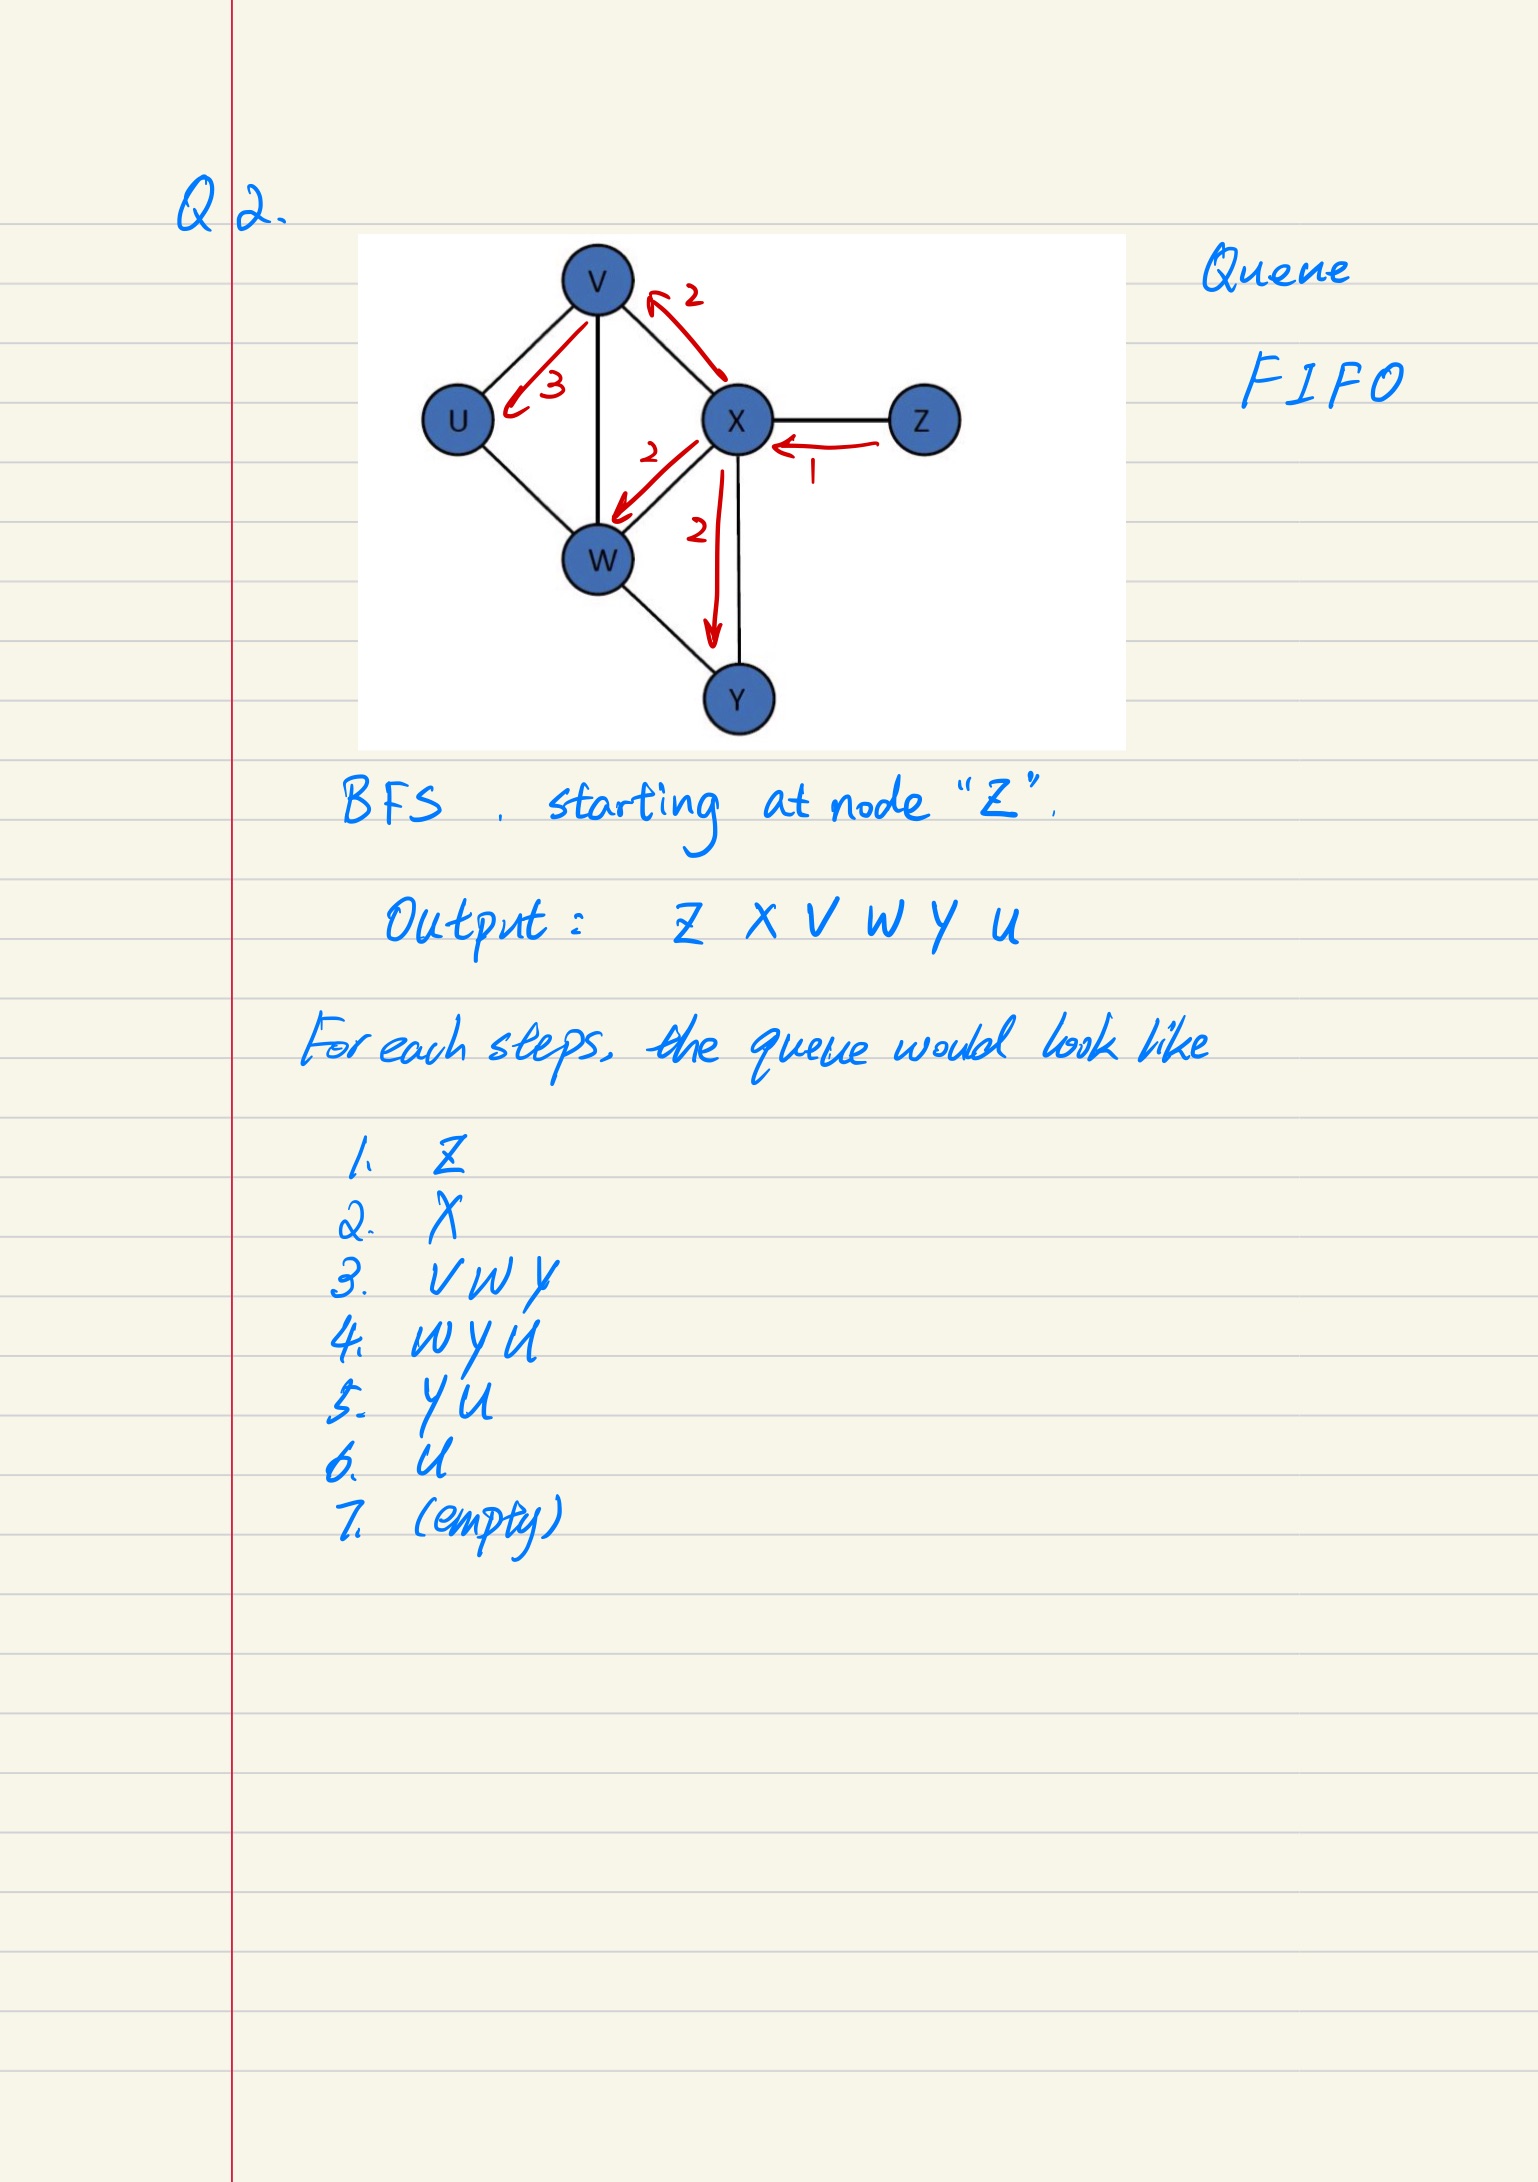 Q2.
Queue
FIFO
V
2
3
U
X
Z
2
1
2
W
Y
BFS . starting at node "Z".
Output: Z X V W Y U
For each steps, the queue would look like
1. Z
2. X
3. V W Y
4. W Y U
5. Y U
6. U
7. (empty)